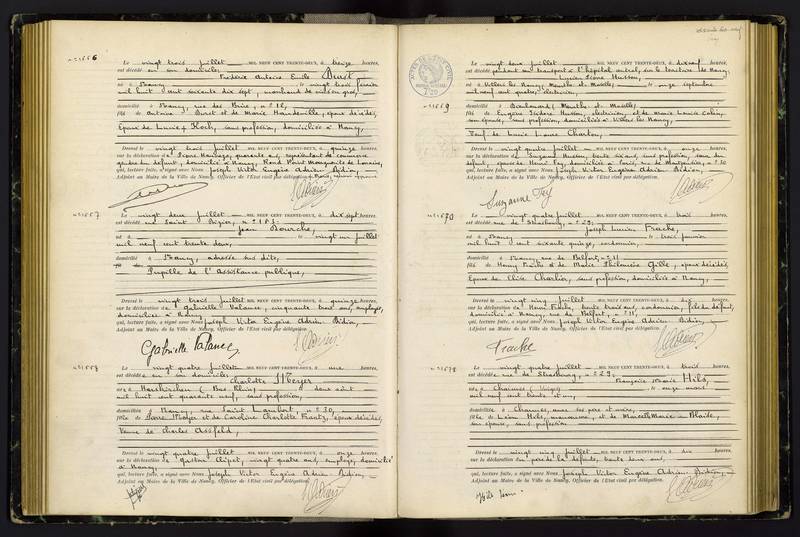 n° 1556
Le vingt trois juillet MIL NEUF CENT TRENTE-DEUX, à treize heures,
est décédé en son domicile,
Frédéric Antoine Emile Binet
né à Nancy le vingt trois février
mil huit cent soixante dix sept, marchand de vins en gros,
domicilié à Nancy, rue des Brice, n° 12,
fils de Antoine Binet et de Marie Haudeville, époux décédés,
Epoux de Lucie Koch, sans profession, domiciliée à Nancy,
Dressé le vingt trois juillet MIL NEUF CENT TRENTE-DEUX, à quinze heures,
sur la déclaration de Pierre quarante ans, représentant de commerce
gendre du défunt, domicilié à Nancy, Rond Point Marguerite de Lorraine,
qui, lecture faite, a signé avec Nous Joseph Victor Eugène Adrien Bidion,
Adjoint au Maire de la Ville de Nancy, Officier de l'Etat civil par délégation.
n° 1557
Le vingt deux juillet MIL NEUF CENT TRENTE-DEUX, à dix sept heures,
est décédé rue Saint Dizier,
Jean Bourche,
né à le vingt un juillet
mil neuf cent trente deux,
domicilié à Nancy, adresse sus dite,
fils de
Pupille de l'Assistance publique,
Dressé le vingt trois juillet MIL NEUF CENT TRENTE-DEUX, à quinze heures,
sur la déclaration de Gabrielle Valance, cinquante trois ans, employée,
domiciliée à Nancy
qui, lecture faite, a signé avec Nous Joseph Victor Eugène Adrien Bidion,
Adjoint au Maire de la Ville de Nancy, Officier de l'Etat civil par délégation.
Gabrielle Valance
n° 1558
Le vingt quatre juillet MIL NEUF CENT TRENTE-DEUX, à une heures,
est décédée en son domicile,
Charlotte Meyer
née à (Bas Rhin) deux août
mil huit cent quarante neuf, sans profession,
domiciliée à Nancy, rue Saint Lambert, n° 30,
fille de Pierre Meyer et de Caroline Charlotte Frantz, époux décédés,
Veuve de Charles Assfeld,
Dressé le vingt quatre juillet MIL NEUF CENT TRENTE-DEUX, à onze heures,
sur la déclaration de Gaston vingt quatre ans, employé, domicilié
à Nancy,
qui, lecture faite, a signé avec Nous Joseph Victor Eugène Adrien Bidion,
Adjoint au Maire de la Ville de Nancy, Officier de l'Etat civil par délégation.
Le vingt deux juillet MIL NEUF CENT TRENTE-DEUX, à dix neuf heures,
est décédé pendant son transport à l'hôpital central, sur le territoire de Nancy,
Husson,
né à Villers les Nancy, Meurthe et Moselle, le onze septembre
mil neuf cent quatre, électricien,
domicilié à (Meurthe et Moselle),
fils de Eugène Isidore Husson, électricien, et de Marie Louise Colin,
son épouse, sans profession, domiciliés à Villers les Nancy,
Veuf de Lucie Laure Charton,
Dressé le vingt quatre juillet MIL NEUF CENT TRENTE-DEUX, à onze heures,
sur la déclaration de Suzanne Husson, trente six ans, sans profession, sœur du
défunt, épouse de Henri Fey, domiciliée à Paris, rue de Montpensier,
qui, lecture faite, a signé avec Nous Joseph Victor Eugène Adrien Bidion,
Adjoint au Maire de la Ville de Nancy, Officier de l'Etat civil par délégation.
Suzanne Fey
Le vingt quatre juillet MIL NEUF CENT TRENTE-DEUX, à trois heures,
est décédé rue de Strasbourg, n° 29,
Joseph Lucien Frache,
né à Nancy le trois janvier
mil huit cent soixante quinze, cordonnier,
domicilié à Nancy, rue de Belfort, n° 11
fils de Henry Frache et de Marie Philomène Gille, époux décédés,
Epoux de Elise Charlier, sans profession, domiciliée à Nancy,
Dressé le vingt cinq juillet MIL NEUF CENT TRENTE-DEUX, à dix heures,
sur la déclaration de Henri Frache, trente trois ans, cordonnier, fils du défunt,
domicilié à Nancy, rue de Belfort, n° 11,
qui, lecture faite, a signé avec Nous Joseph Victor Eugène Adrien Bidion,
Adjoint au Maire de la Ville de Nancy, Officier de l'Etat civil par délégation.
Frache
Le vingt quatre juillet MIL NEUF CENT TRENTE-DEUX, à trois heures,
est décédée rue de Strasbourg, n° 29,
Françoise Marie Hils,
née à Charmes (Vosges) le onze mars
mil neuf cent trente et un,
domiciliée à Charmes, avec ses père et mère,
fille de Léon Hils, et de Marcelle Marie Blaise,
son épouse, sans profession
Dressé le vingt cinq juillet MIL NEUF CENT TRENTE-DEUX, à dix heures,
sur la déclaration du père de la défunte, trente deux ans,
qui, lecture faite, a signé avec Nous Joseph Victor Eugène Adrien Bidion,
Adjoint au Maire de la Ville de Nancy, Officier de l'Etat civil par délégation.